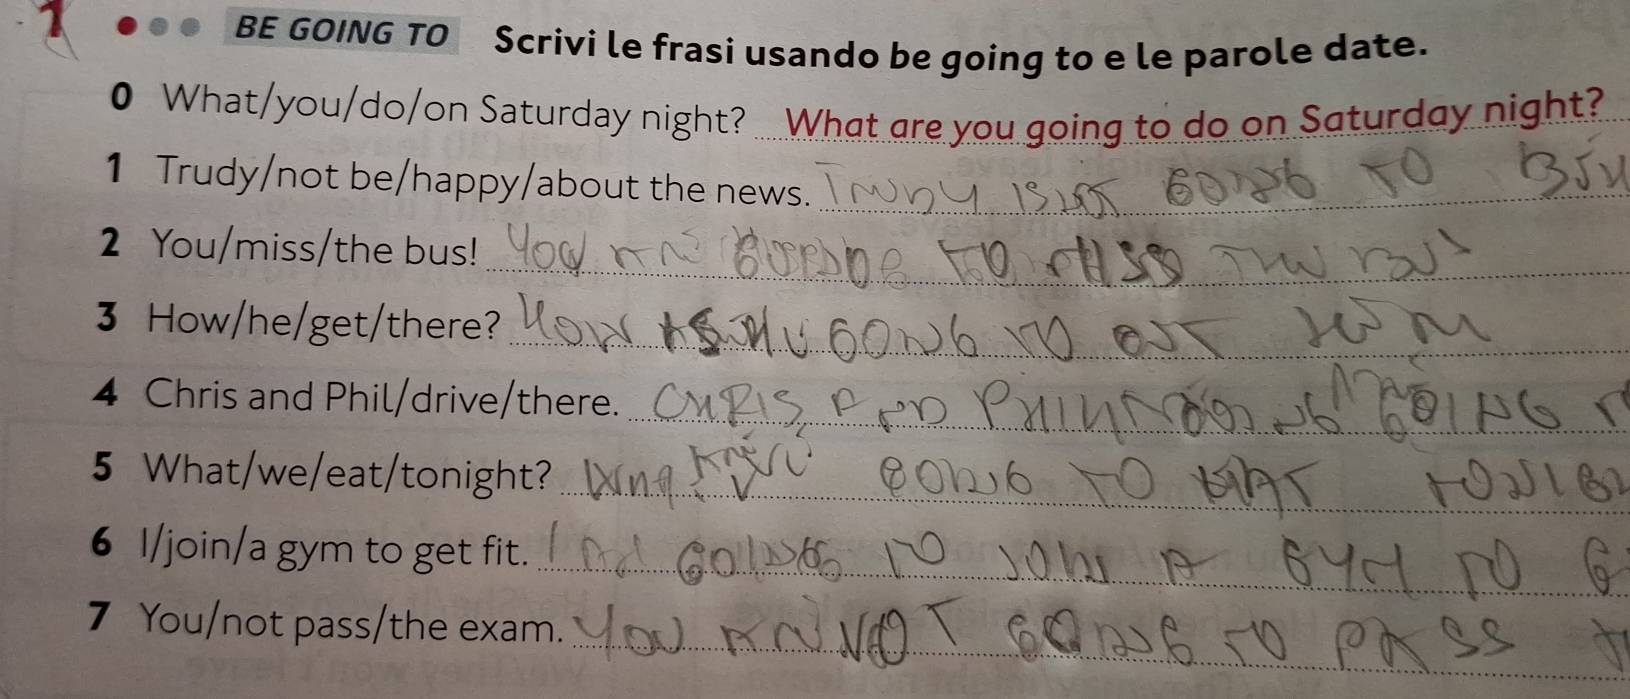 1 BE GOING TO Scrivi le frasi usando be going to e le parole date.
0 What/you/do/on Saturday night? What are you going to do on Saturday night?
1 Trudy/not be/happy/about the news. TRUDY IS NOT GOING TO
2 You/miss/the bus! You GOING TO MISS THE BUS
3 How/he/get/there? How IS HE GOING TO GET
4 Chris and Phil/drive/there. CHRIS AND PHIL GOING
5 What/we/eat/tonight? GOING TO EAT
6 I/join/a gym to get fit. I GOING TO JOIN A GYM TO
7 You/not pass/the exam. YOU NOT GOING TO PASS